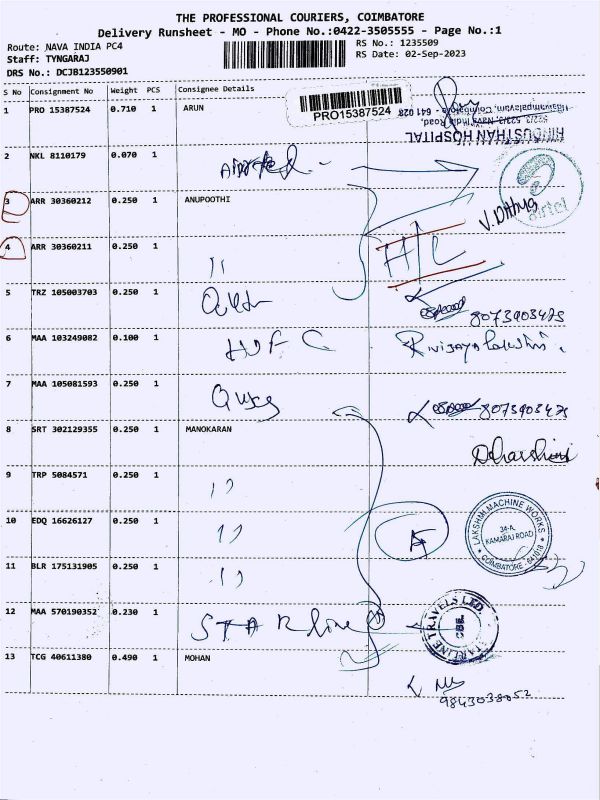 THE PROFESSIONAL COURIERS, COIMBATORE
Delivery Runsheet - MO - Phone No.:0422-3505555 - Page No.:1
Route: NAVA INDIA PC4
Staff: TYNGARAJ
DRS No.: DCJB123550901
RS No.: 1235509
RS Date: 02-Sep-2023
S No Consignment No Weight PCS Consignee Details
1 PRO 15387524 0.710 1 ARUN
PRO15387524
HINDUSTHAN HOSPITAL
522/3, 523/3, Nava India Road,
Coimbatore - 641 028
2 NKL 8110179 0.070 1
airtel
3 ARR 30360212 0.250 1 ANUPOOTHI
4 ARR 30360211 0.250 1 "
5 TRZ 105003703 0.250 1
8073908475
6 MAA 103249082 0.100 1 HDFC
7 MAA 105081593 0.250 1
8073908475
8 SRT 302129355 0.250 1 MANOKARAN
Dharshini
9 TRP 5084571 0.250 1 "
10 EDQ 16626127 0.250 1 "
LAKSHMI MACHINE WORKS
34-A,
KAMARAJ ROAD
COIMBATORE - 641018
11 BLR 175131905 0.250 1 "
12 MAA 570190352 0.230 1 STAR line
STARLINE TRAVELS LTD.
CBE.
13 TCG 40611380 0.490 1 MOHAN
9843038052